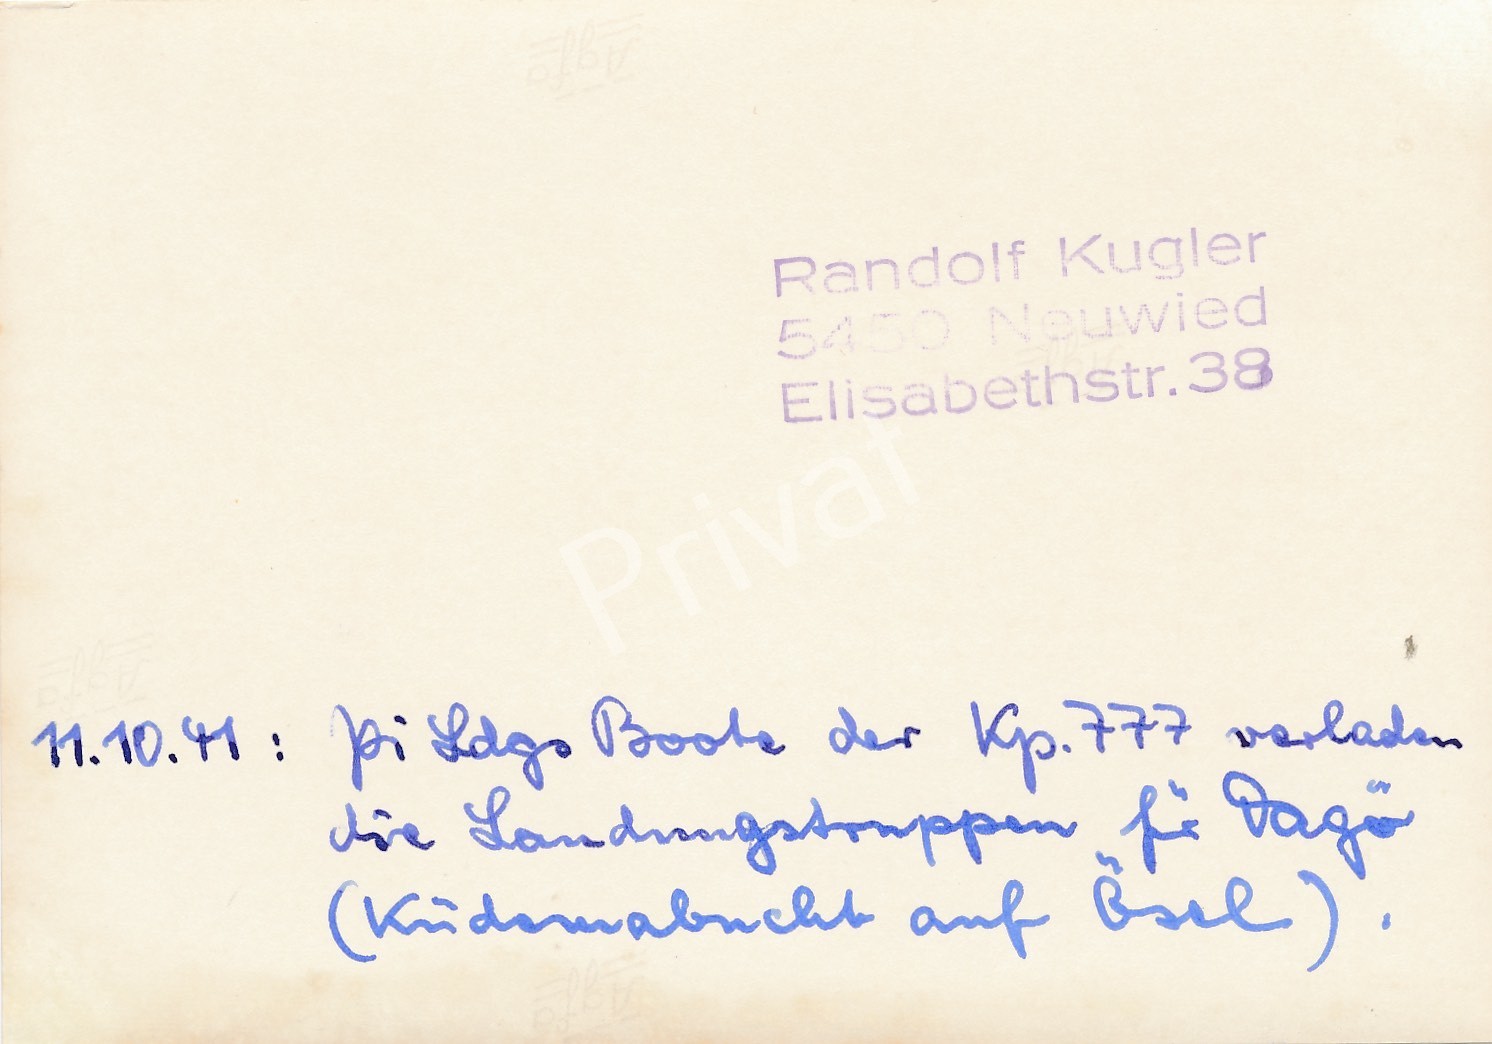 Agfa
Randolf Kugler
5450 Neuwied
Elisabethstr. 38
Privat
Agfa
11.10.41: Pi Ldgs Boote der Kp. 777 verladen
die Landungstruppen für Dagö
(Küdemabucht auf Ösel).
Agfa